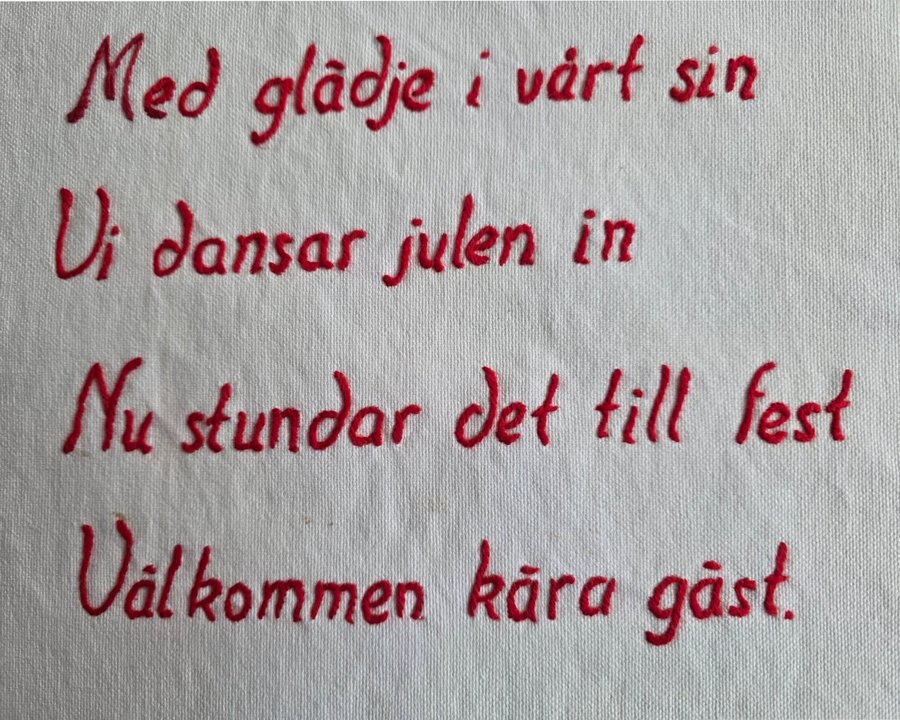 Med glädje i vårt sin
Vi dansar julen in
Nu stundar det till fest
Välkommen kära gäst.